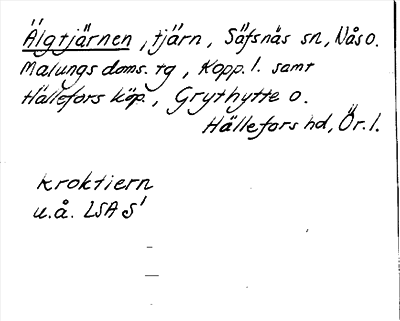 Älgtjärnen, tjärn, Säfsnäs sn, Nås o.
Malungs doms. tg, Kopp. l. samt
Hällefors köp., Grythytte o.
Hällefors hd, Ör. l.
Kroktiern
u.å. LSA S¹